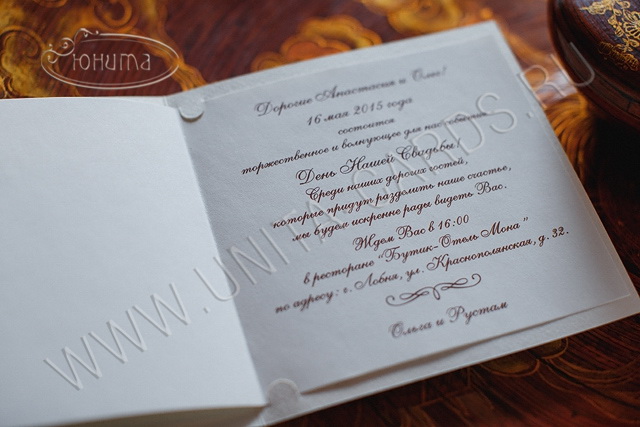 Юнита
Дорогие Анастасия и Олег!
16 мая 2015 года
состоится
торжественное и волнующее для нас событие
День Нашей Свадьбы!
Среди наших дорогих гостей,
которые придут разделить наше счастье,
мы будем искренне рады видеть Вас.
Ждем Вас в 16:00
в ресторане "Бутик-Отель Мона"
по адресу: г. Лобня, ул. Краснополянская, д. 32.
Ольга и Рустам
WWW.UNITA-CARDS.RU